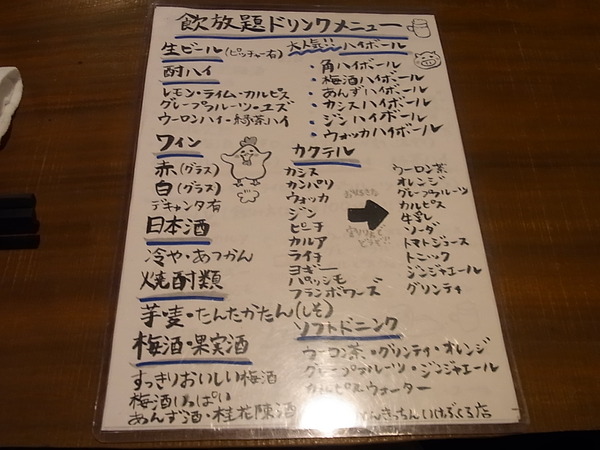 飲放題ドリンクメニュー
生ビール(ピッチャー有)
酎ハイ
レモン・ライム・カルピス
グレープフルーツ・ユズ
ウーロンハイ・緑茶ハイ
大人気!!ハイボール
・角ハイボール
・梅酒ハイボール
・あんずハイボール
・カシスハイボール
・ジンハイボール
・ウォッカハイボール
ワイン
赤(グラス)
白(グラス)
デキャンタ有
日本酒
冷や・あつかん
焼酎類
芋・麦・たんたかたん(しそ)
梅酒・果実酒
すっきりおいしい梅酒
梅酒いっぱい
あんず酒・桂花陳酒
カクテル
カシス
カンパリ
ウォッカ
ジン
ピーチ
カルア
ライチ
ヨギー
パッシモ
フランボワーズ
お好きな
割りもんで
どうぞ!!
ウーロン茶
オレンジ
グレープフルーツ
カルピス
牛乳
ソーダ
トマトジュース
トニック
ジンジャエール
グリンティ
ソフトドニンク
ウーロン茶・グリンティ・オレンジ
グレープフルーツ・ジンジャエール
カルピスウォーター
きっちんいけぶくろ店